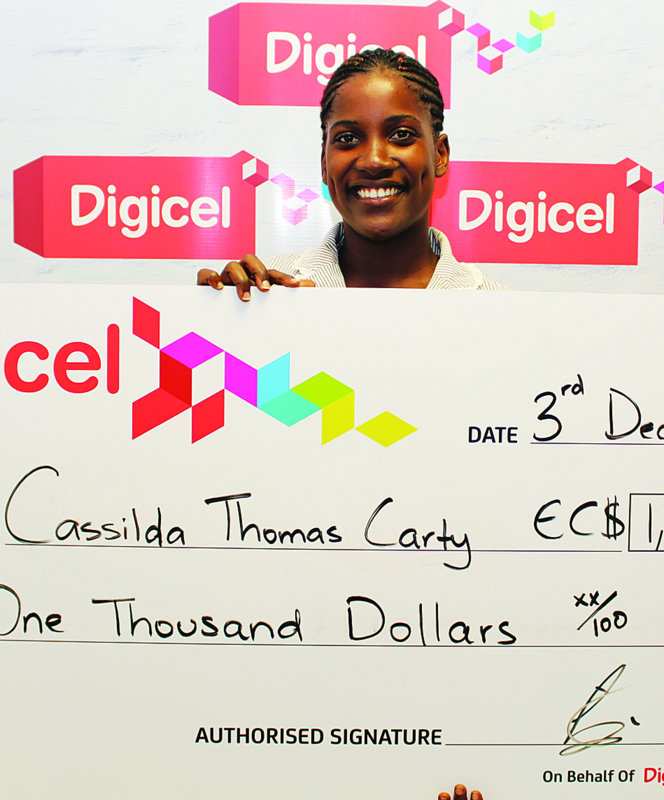 Digicel
Digicel
Digicel
cel
DATE 3rd Dec
Cassilda Thomas Carty EC$ 1,
One Thousand Dollars xx/100
AUTHORISED SIGNATURE
On Behalf Of Dig